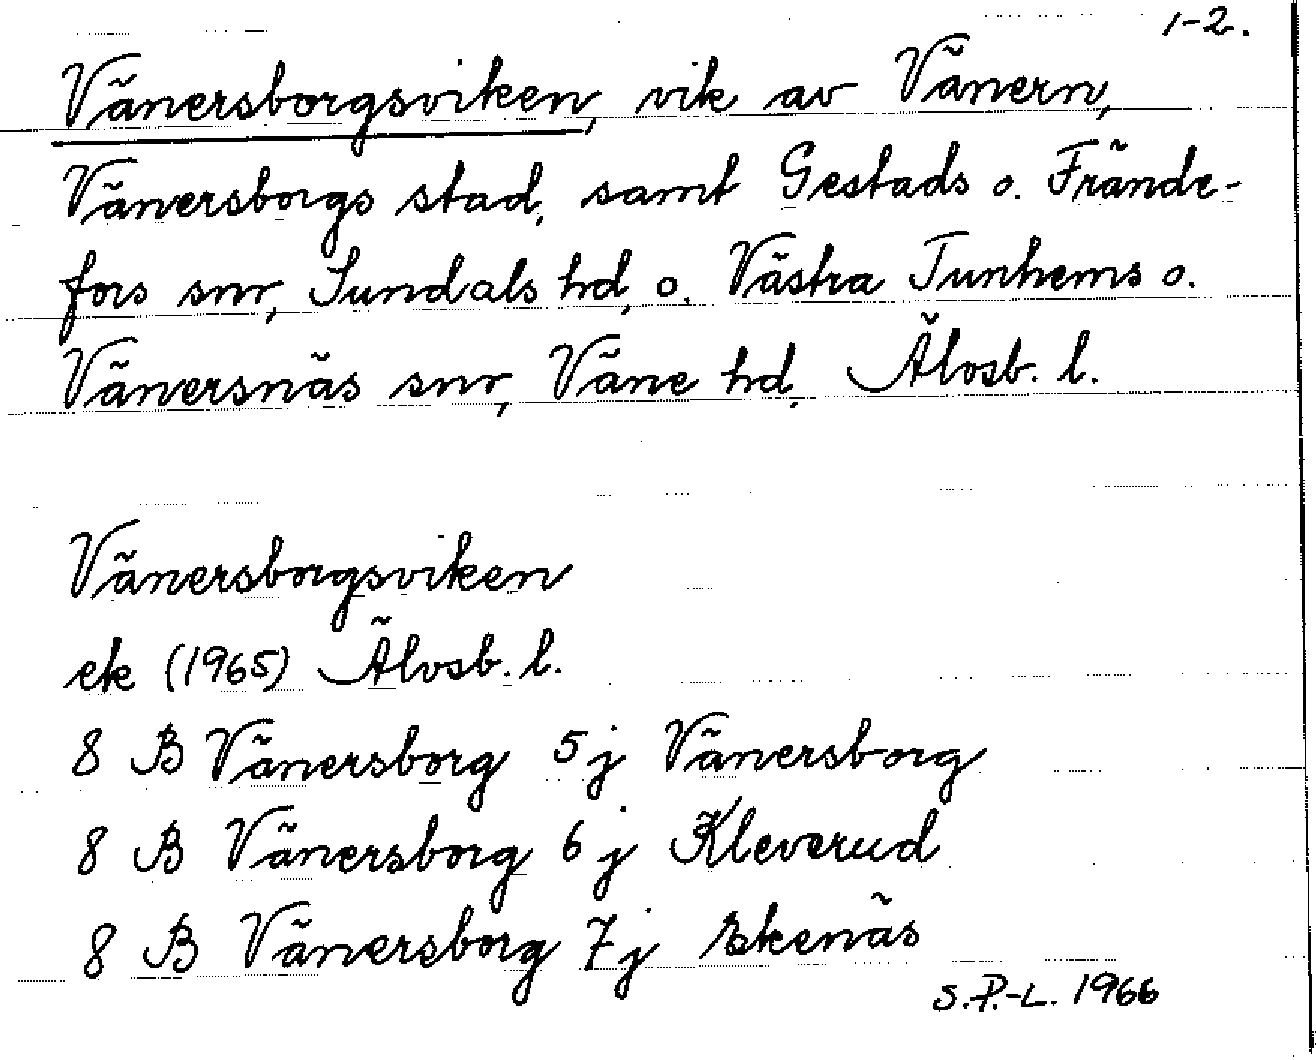 1-2.
Vänersborgsviken, vik av Vänern,
Vänersborgs stad, samt Gestads o. Frände-
fors snr, Sundals hd, o. Västra Tunhems o.
Vänersnäs snr, Väne hd, Älvsb. l.
Vänersborgsviken
ek (1965) Älvsb. l.
8 B Vänersborg 5j Vänersborg
8 B Vänersborg 6j Kleverud
8 B Vänersborg 7j Ekenäs
S.P.-L. 1966